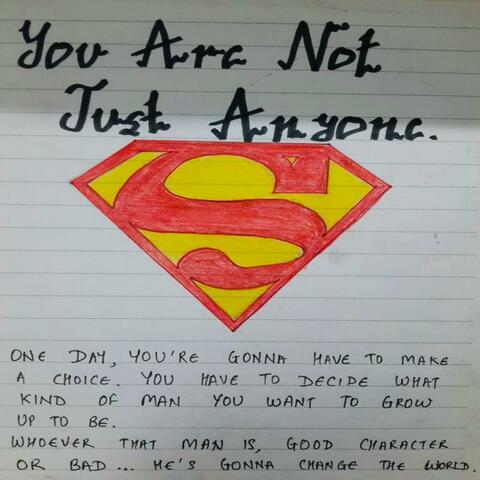 You Are Not
Just Anyone.
S
ONE DAY, YOU'RE GONNA HAVE TO MAKE
A CHOICE. YOU HAVE TO DECIDE WHAT
KIND OF MAN YOU WANT TO GROW
UP TO BE.
WHOEVER THAT MAN IS, GOOD CHARACTER
OR BAD ... HE'S GONNA CHANGE THE WORLD.